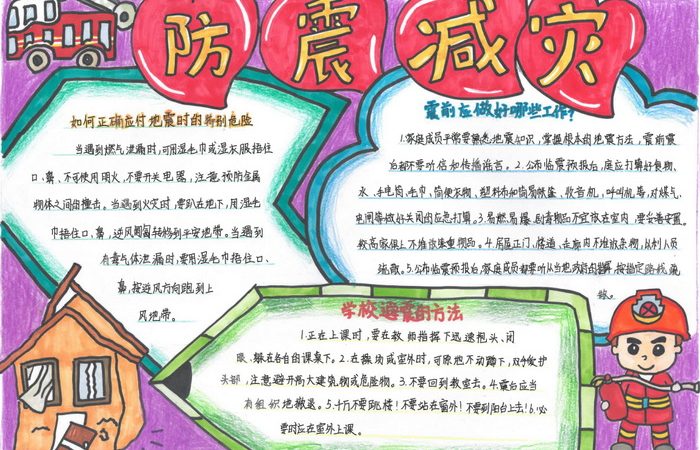 防震减灾
如何正确应付地震时的特别危险
当遇到燃气泄漏时,可用湿毛巾或湿衣服捂住
口、鼻、不可使用明火,不要开关电器,注意预防金属
物体之间的撞击。当遇到火灾时,要趴在地下,用湿毛
巾捂住口、鼻,逆风匍匐转移到平安地带。当遇到
有毒气体泄漏时,要用湿毛巾捂住口、
鼻,按逆风方向跑到上
风地带。
震前应做好哪些工作?
1.家庭成员平常要熟悉地震知识,掌握根本的地震方法,震前震
后都不要听信和传播谣言。2.公布临震预报后,庭应打算好食物、
水、手电筒、毛巾、简便衣物、塑料布和简易帐篷、收音机,呼叫机等,对煤气、
电闸等做好关闭的应急打算。3.易燃易爆剧毒物品不宜放在室内,要妥善安置。
较高家俱上不堆放集重物品。4.房屋正门、楼道、走廊内不堆放杂物,以利人员
疏散。5.公布临震预报后,家庭成员都要听从当地政府的部署,按指定路线疏
散。
学校避震的方法
1.正在上课时,要在教师指挥下迅速抱头、闭
眼、躲在各自的课桌下。2.在操场或室外时,可原地不动蹲下,双手保护
头部,注意避开高大建筑物或危险物。3.不要回到教室去。4.震后应当
有组织地撤退。5.千万不要跳楼!不要站在窗外!不要到阳台上去!6.必
要时应在室外上课。